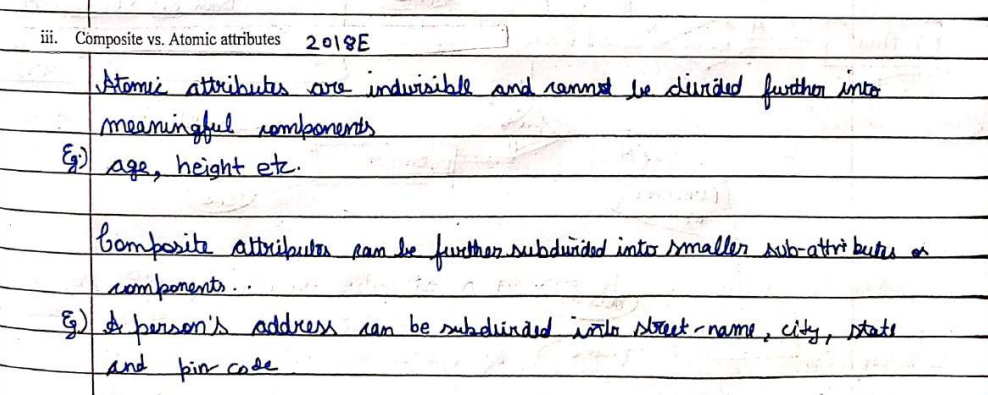 iii. Composite vs. Atomic attributes 2018E
Atomic attributes are indivisible and cannot be divided further into
meaningful components
Eg:) age, height etc.
Composite attributes can be further subdivided into smaller sub-attributes or
components..
Eg) A person's address can be subdivided into street-name, city, state
and pin code